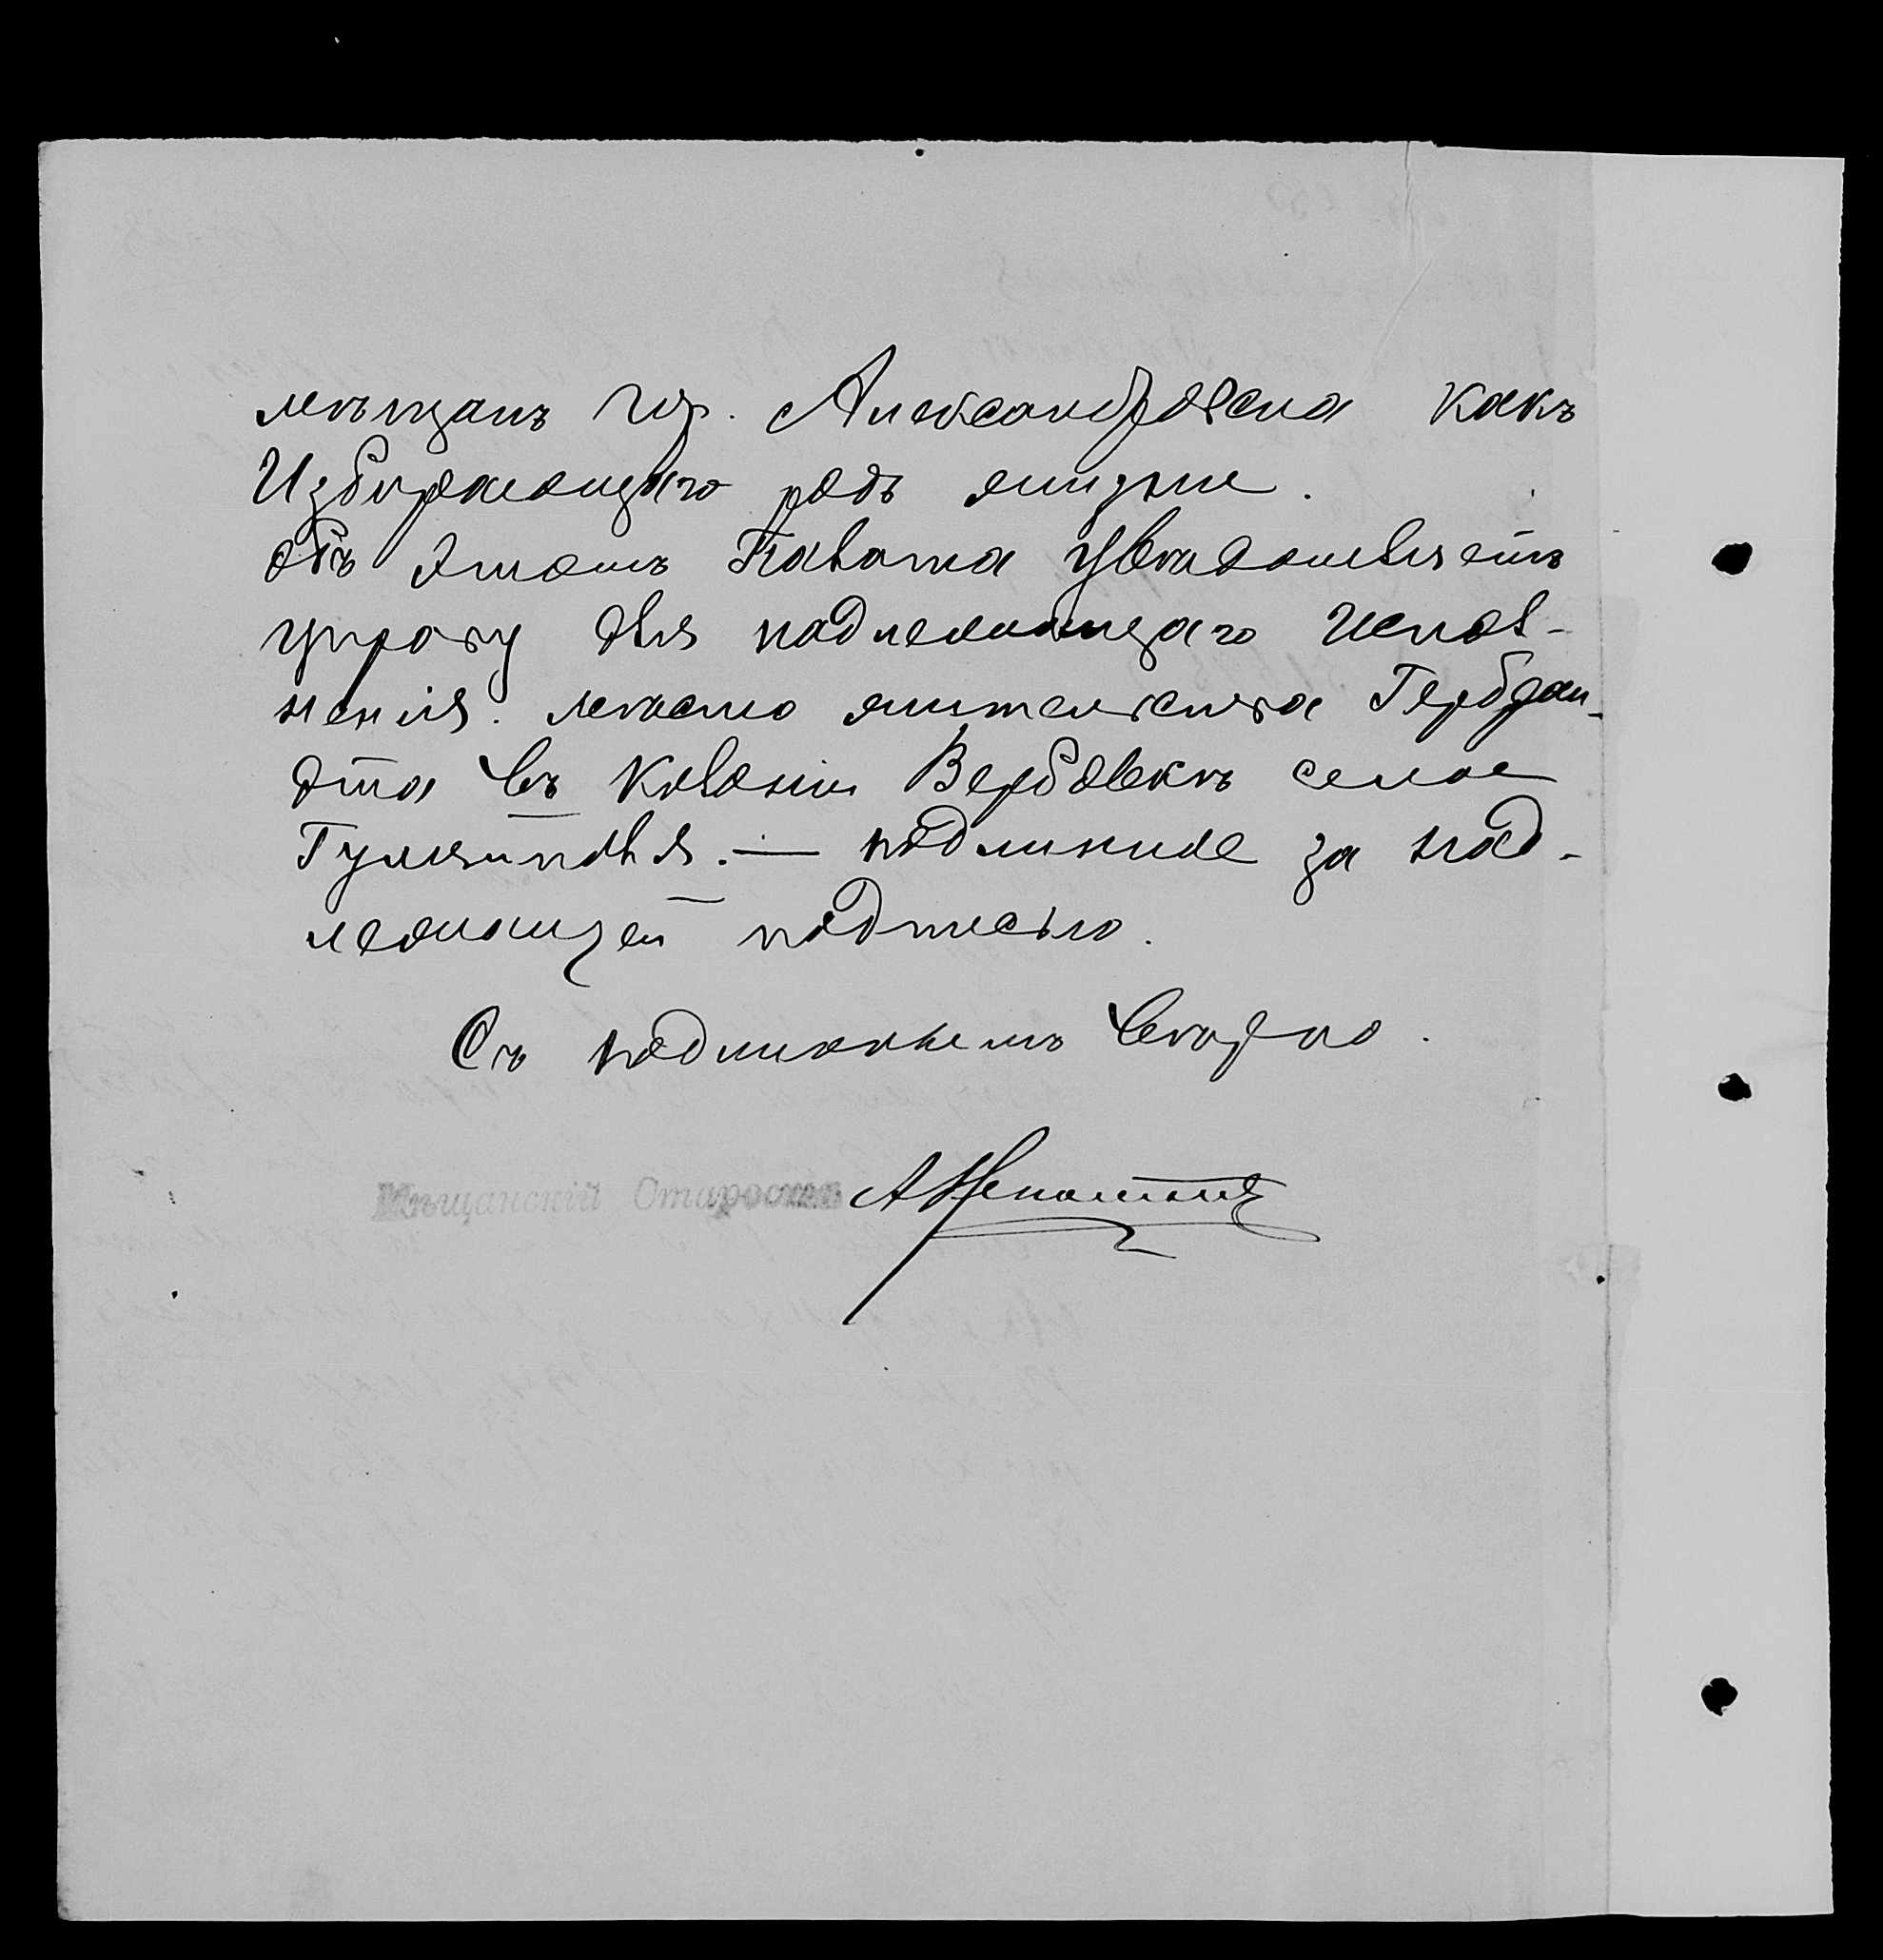 мѣщанъ гор. Александровска какъ
Избирающаго родъ жизни.
Объ этомъ Палата увѣдомляетъ
управу для надлежащаго испол-
ненія. мѣсто жительства Гербран-
дта въ колоніи Вербовкѣ селѣ
Гуляйполѣ. — подлинное за над-
лежащей подписью.
Съ подлиннымъ вѣрно.
Мѣщанскій Староста